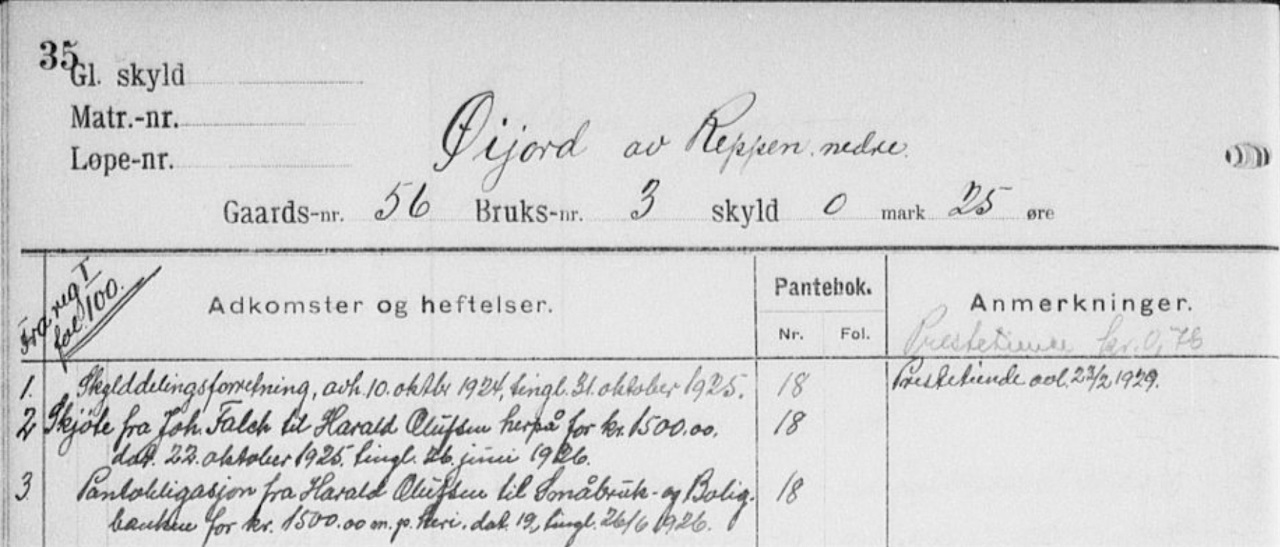 35
Gl. skyld
Matr.-nr.
Løpe-nr.
Øijord av Reppen nedre.
Gaards-nr. 56 Bruks-nr. 3 skyld 0 mark 25 øre
Fra reg I
fol. 100.
Adkomster og heftelser.
Pantebok.
Nr. Fol.
Anmerkninger.
Prestetiende kr. 0,76
1. Skylddelingsforretning, avh. 10. oktbr 1924, tingl. 31. oktober 1925. 18 Prestetiende avl. 23/2 1929.
2 Skjøte fra Joh. Falch til Harald Olufsen herpå for kr. 1500.00. 18
dat. 22. oktober 1925. tingl. 26. juni 1926.
3. Pantobligasjon fra Harald Olufsen til Småbruk- og Bolig- 18
banken for kr. 1500.00 m. p. heri. dat. 19, tingl. 26/6 1926.